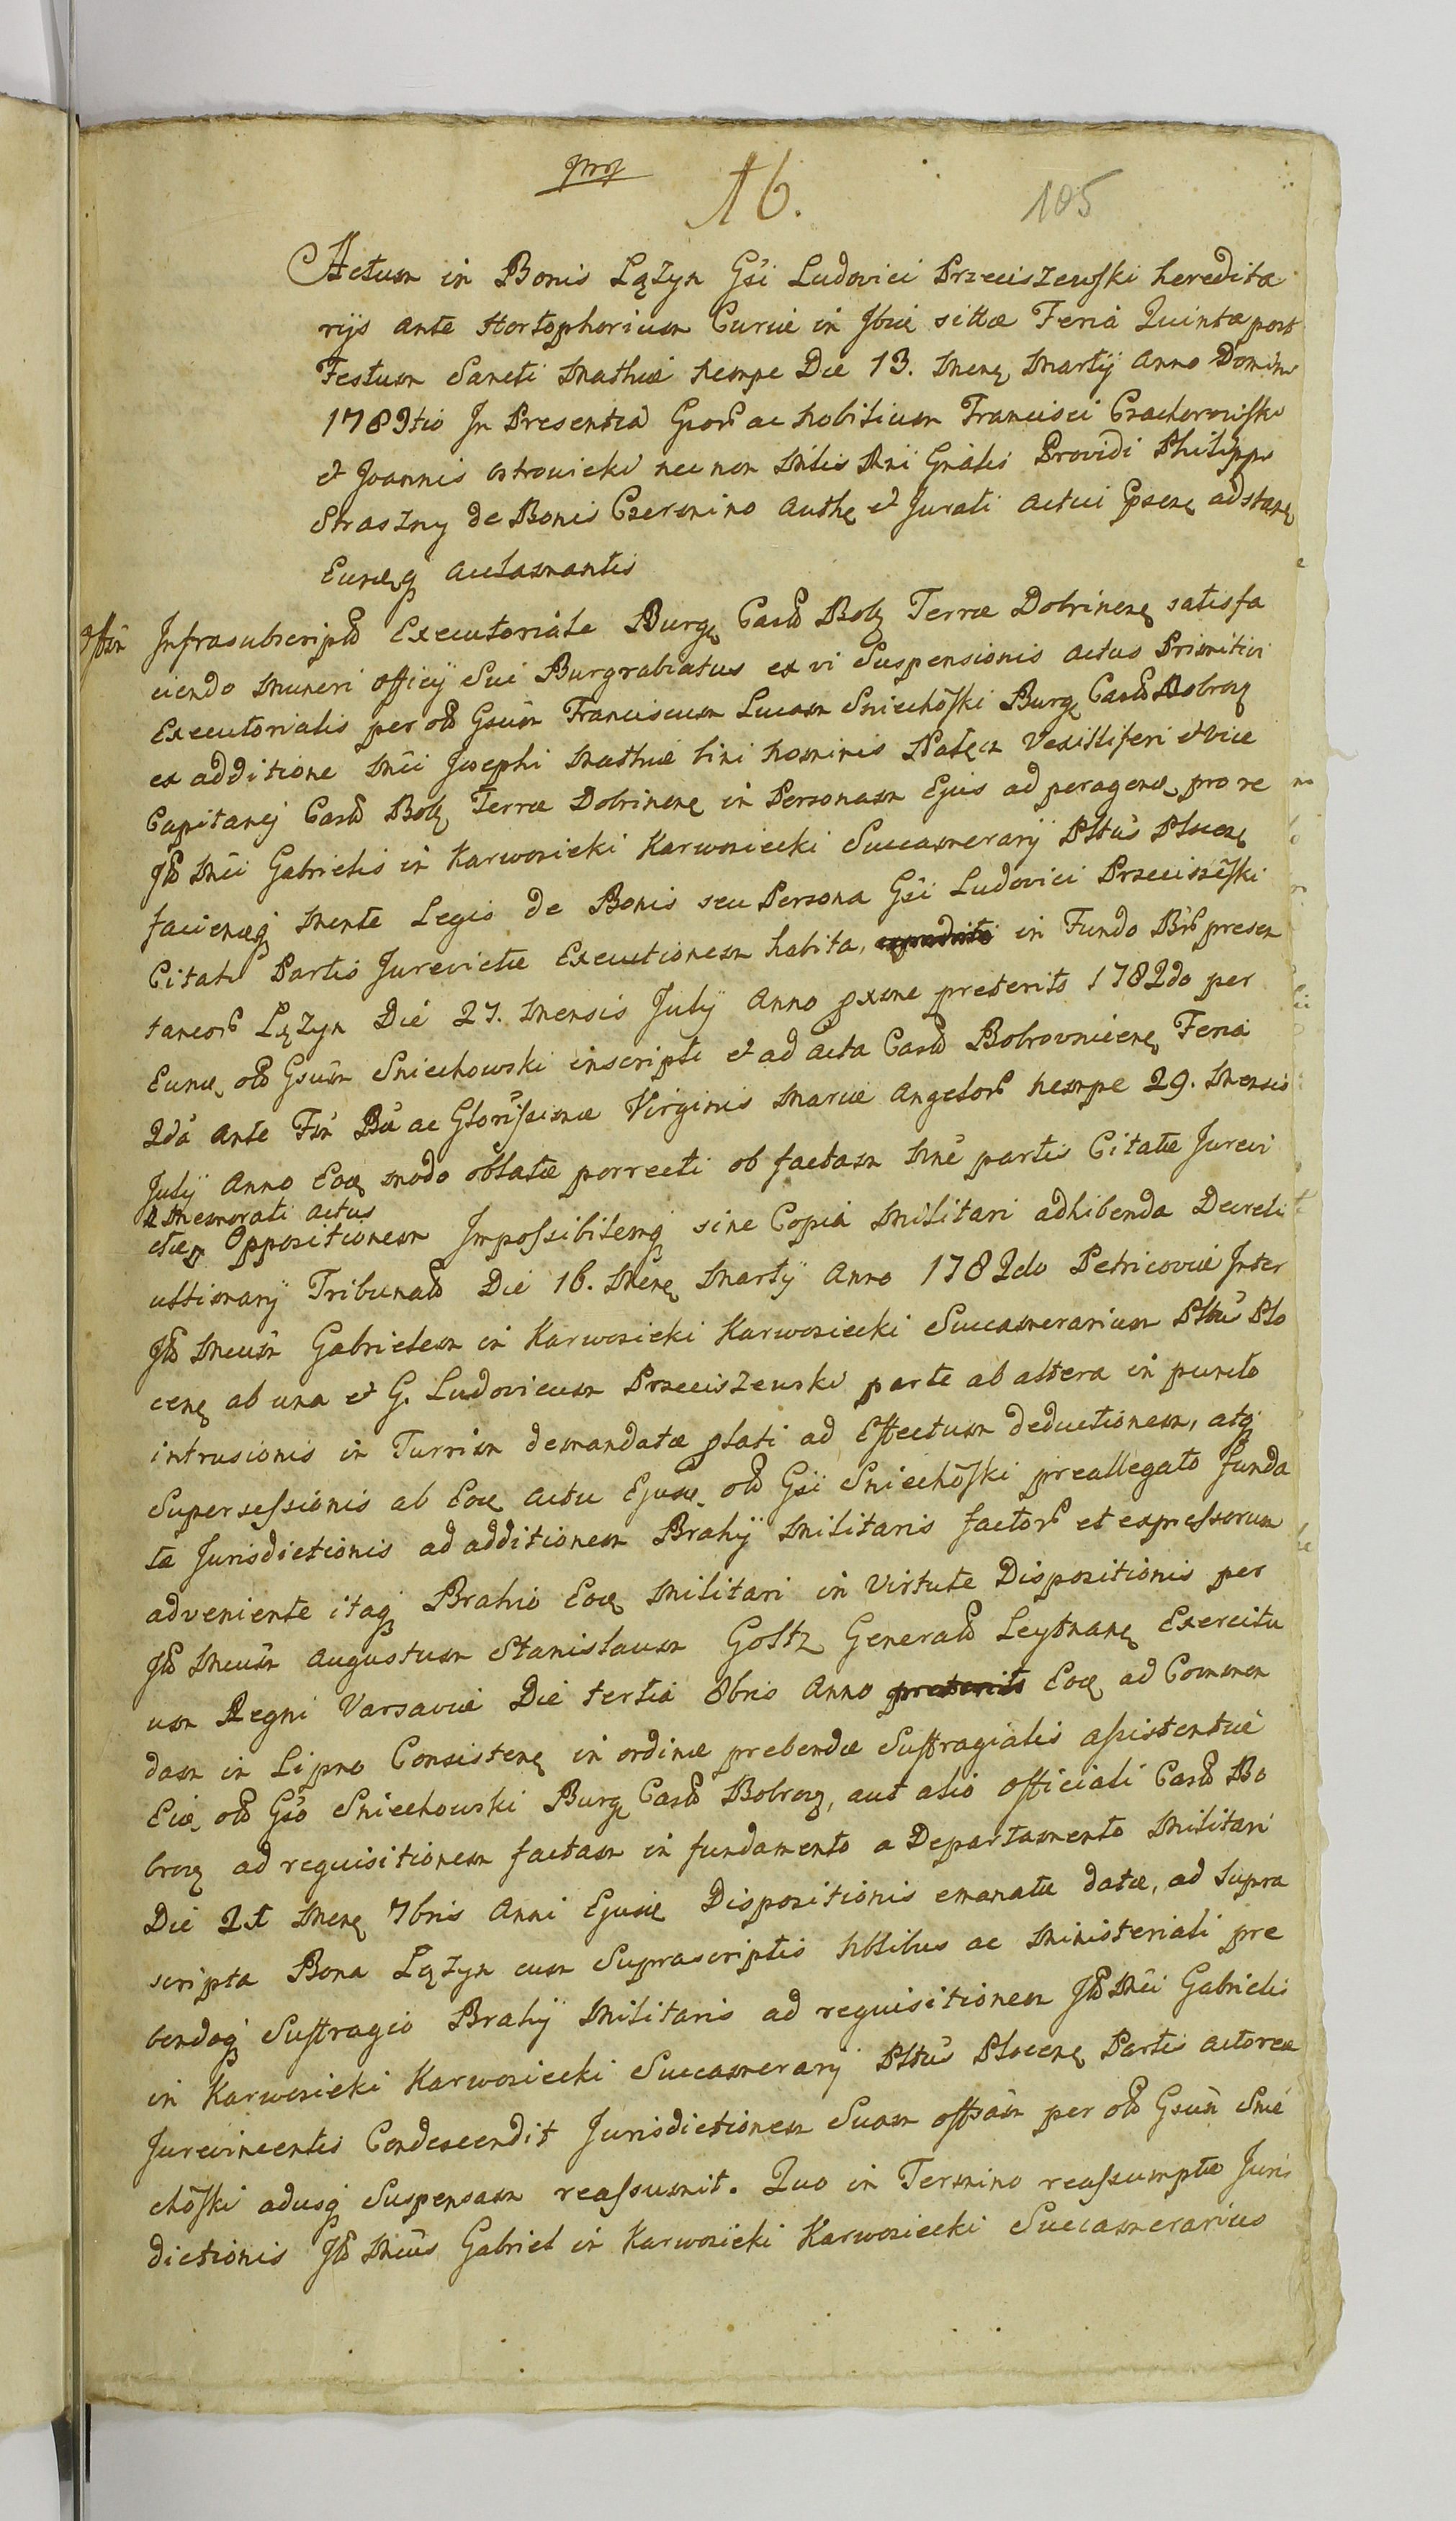 16.
105
Actum in Bonis Lązyn Gsi Ludovici Przeciszewski heredita
rijs ante Hortophorium Curiæ in Ibiæ sittæ Feria Quinta post
Festum Sancti Mathiæ nempe Die 13. Mens Martÿ Anno Domini
1783tio In Presentia Gror ac Nobilium Francisci Czachorowski
et Joannis Ostrowicki nec non Mlis Rni Gnalis Providi Philippi
Straszny de Bonis Czermino Authe et Jurati actui Psene adstane
Eunq aclamantis
Offm Infrasubscriptū Executoriale Burg Castr Bob Terræ Dobrinen satisfa
ciendo Muneri officÿ Sui Burgrabiatus ex vi Suspensionis actus Primitivi
Executorialis per olt Gsum Franciscum Lucam Sniechoski Burg Castr Bobrow
ex additione Mci Josephi Mathiæ bini Nominis Nałęcz Vexilliferi et Vice
Capitanej Castr Bob Terræ Dobrinen in Personam Ejus ad peragend pro re
Jll Mci Gabrielis in Karwosieki Karwosiecki Succamerarÿ Plttus Plocen
faciendq Mente Legis de Bonis seu Persona Gsi Ludovici Przeciszeski
Citatæ Partis Jurevictæ Executionem habita, in Fundo Bor presen
taneor Lązyn Die 27. Mensis July Anno pxime preterito 1782do per
Eund, olt Gsum Sniechowski inscripti et ad acta Castr Bobrovnicen Feria
2da ante Fm Bæ ac Glorissimæ Virginis Mariæ Angelor nempe 29. Mensis
July Anno Eod modo oblatæ porrecti ob factam Mne partis Citatæ Jurevi
Memorati actus
ctæ Oppositionem Impossibilemq sine Copia Militari adhibenda Decreti
ultimarÿ Tribunalr Die 16. Mens Martÿ Anno 1782do Petricoviæ Inter
Jll Mcum Gabrielem in Karwosieki Karwosiecki Succamerarium Plttus Plo
cens ab una et G. Ludovicum Przeciszewski parte ab altera in puncto
intrusionis in Turrim demandatæ plati ad Effectum deductionem, atq
Supersessionis ab Eod actu Ejusd, olt Gsi Sniechoski preallegato funda
tæ Jurisdictionis ad additionem Brahÿ Militaris factor et expressorum
adveniente itaq Brahio Eod Militari in Virtute Dispositionis per
Jll Mcum Augustum Stanislaum Goltz Generalr Leytnane Exercitu
um Regni Varsaviæ Die tertia 8bris Anno preterito Eod ad Commen
dam in Lipno Consisten in ordine prebendæ Suffragialis assistentiæ
Eid, olt Gso Sniechowski Burg Castr Bobrow, aut alio officiali Castr Bo
brow ad requisitionem factam in fundamento a Departamento Militari
Die 21 Mens 7bris Anni Ejusd Dispositionis emanatæ datæ, ad Supra
scripta Bona Lązyn cum Suprascriptis Nblibus ac Ministeriali pre
bendoq Suffragio Brahÿ Militaris ad requisitionem Jll Mci Gabrielis
in Karwosieki Karwosiecki Succamerarÿ Plttus Plocens Partis actoreæ
Jurevincentis Condescendit Jurisdictionem Suam offsam per olt Gsum Snie
choski adusq Suspensam reassumit. Quo in Termino reassumptæ Juris
dictionis Jll Mcus Gabriel in Karwosieki Karwosiecki Succamerarius